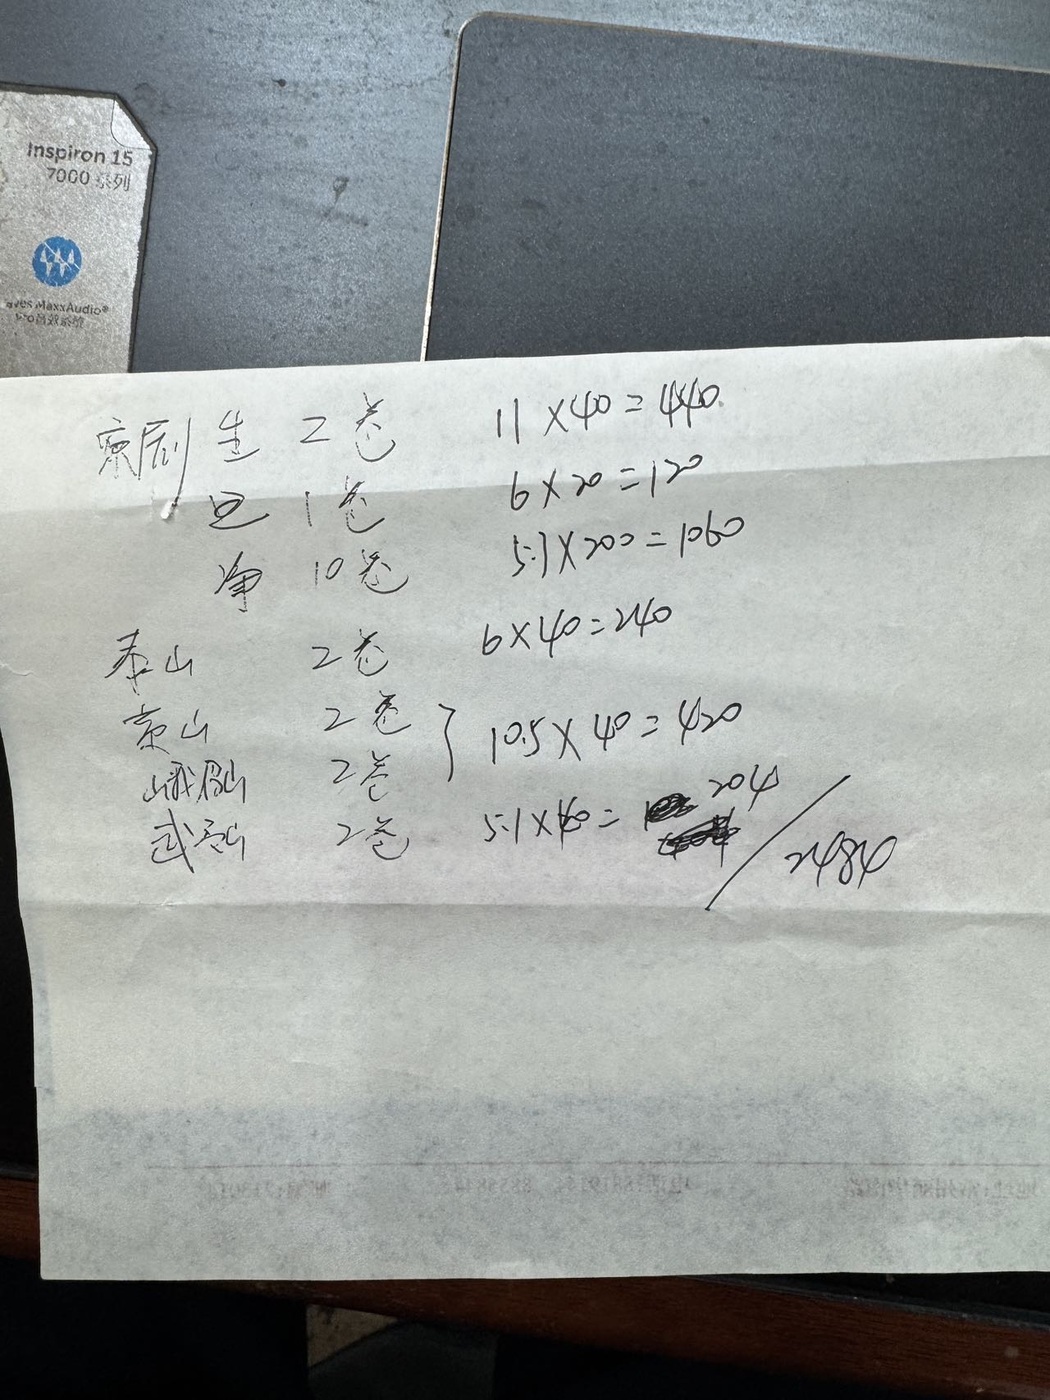 Inspiron 15
7000 系列
Waves MaxxAudio®
Pro音效系统
京剧 生 2卷 11×40=440
旦 1卷 6×20=120
净 10卷 5.3×200=1060
泰山 2卷 6×40=240
黄山 2卷
峨眉山 2卷 } 10.5×40=420
武当山 2卷 5.1×40= 204
2484